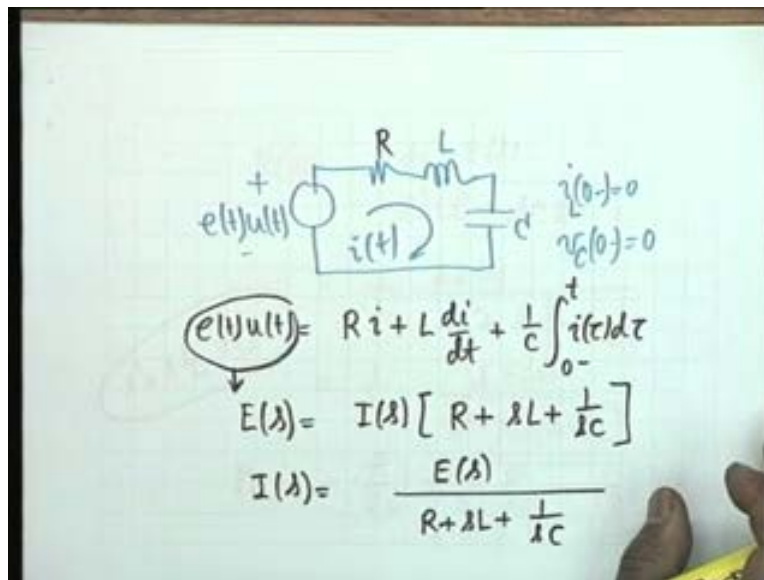 R L
+
e(t)u(t)
-
i(t)
C
i_L(0-)=0
v_C(0-)=0
e(t)u(t) = R i + L di/dt + 1/C ∫_{0-}^{t} i(τ)dτ
E(s) = I(s) [ R + sL + 1/sC ]
I(s) = E(s) / R+sL+ 1/sC